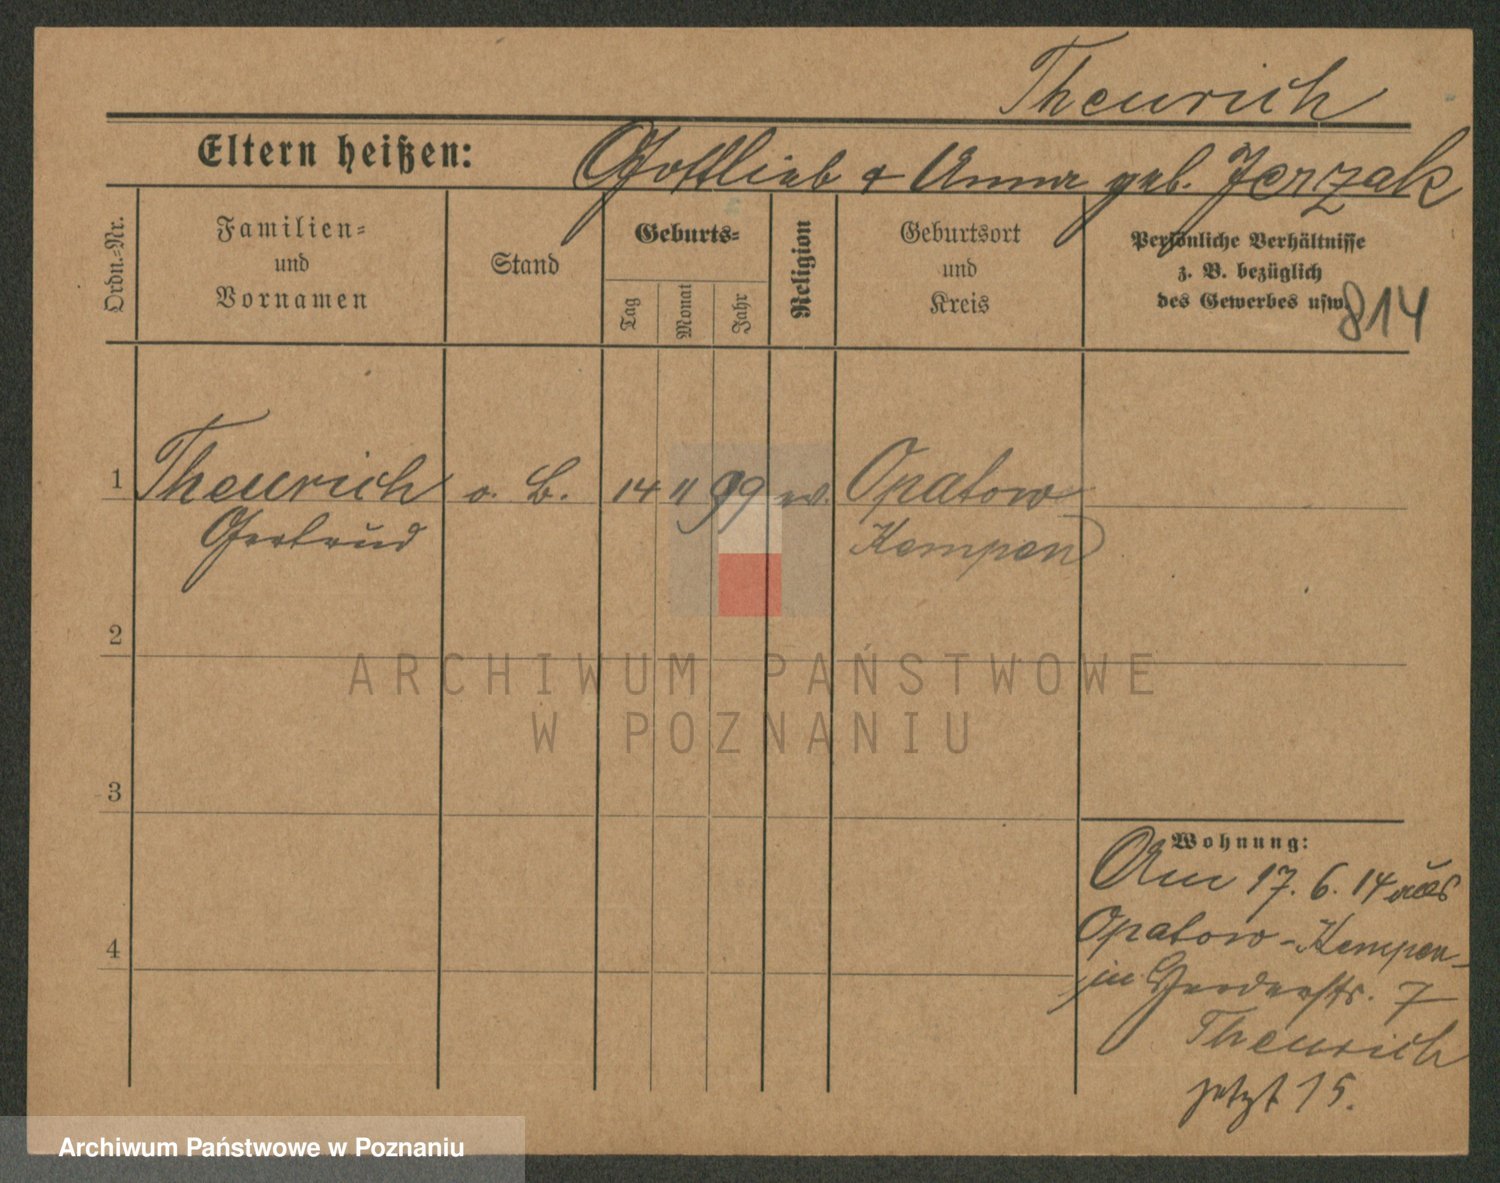 Theurich
Eltern heißen: Gottlieb & Anna geb. Jerzak
Ordn.-Nr.
Familien-
und
Vornamen
Stand
Geburts-
Tag
Monat
Jahr
Religion
Geburtsort
und
Kreis
Persönliche Verhältnisse
z. B. bezüglich
des Gewerbes usw.
814
1 Theurich o. B. 14 11 99 ev. Opatow
Gertrud Kempen
2
ARCHIWUM PAŃSTWOWE
W POZNANIU
3
Wohnung:
Am 17. 6. 14 aus
Opatow-Kempen
in Herderstr. 7
4
Theurich
jetzt 15.
Archiwum Państwowe w Poznaniu